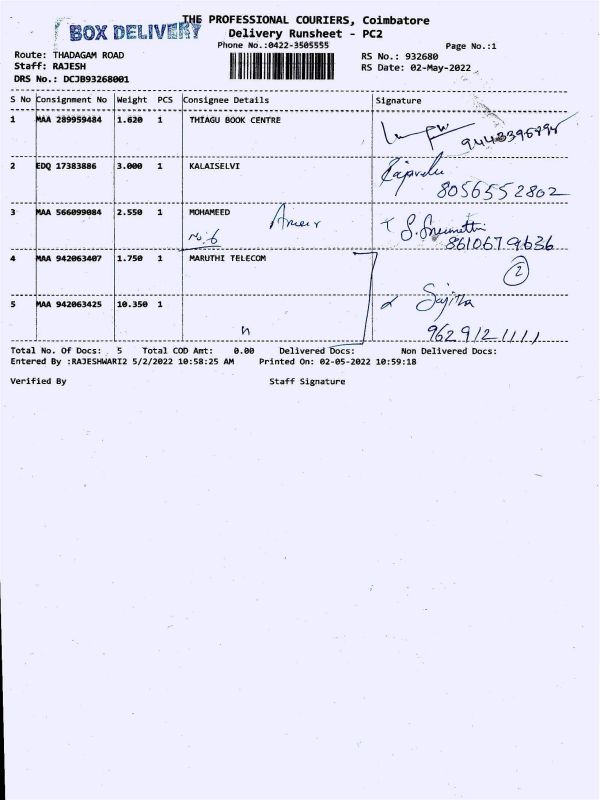 BOX DELIVERY
THE PROFESSIONAL COURIERS, Coimbatore
Delivery Runsheet - PC2
Phone No.:0422-3505555
Page No.:1
Route: THADAGAM ROAD
RS No.: 932680
Staff: RAJESH
RS Date: 02-May-2022
DRS No.: DCJB93268001
S No Consignment No Weight PCS Consignee Details Signature
1 MAA 289959484 1.620 1 THIAGU BOOK CENTRE
2 EDQ 17383886 3.000 1 KALAISELVI
8056552802
3 MAA 566099084 2.550 1 MOHAMEED
No: 6
8610679636
4 MAA 942063407 1.750 1 MARUTHI TELECOM
2
5 MAA 942063425 10.350 1
Sajitha
9629121111
Total No. Of Docs: 5 Total COD Amt: 0.00 Delivered Docs: Non Delivered Docs:
Entered By :RAJESHWARI2 5/2/2022 10:58:25 AM Printed On: 02-05-2022 10:59:18
Verified By Staff Signature